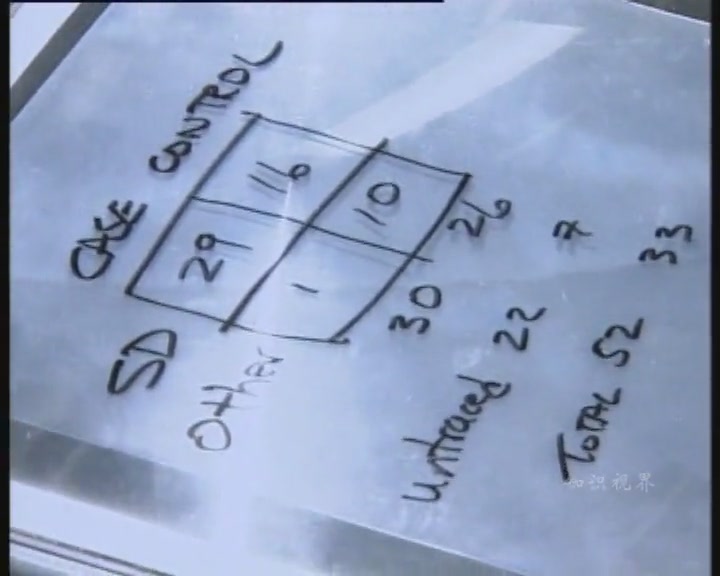 CASE CONTROL
SD 29 116
Other 1 10
30 26
Untraced 22 7
TOTAL 52 33
知识视界